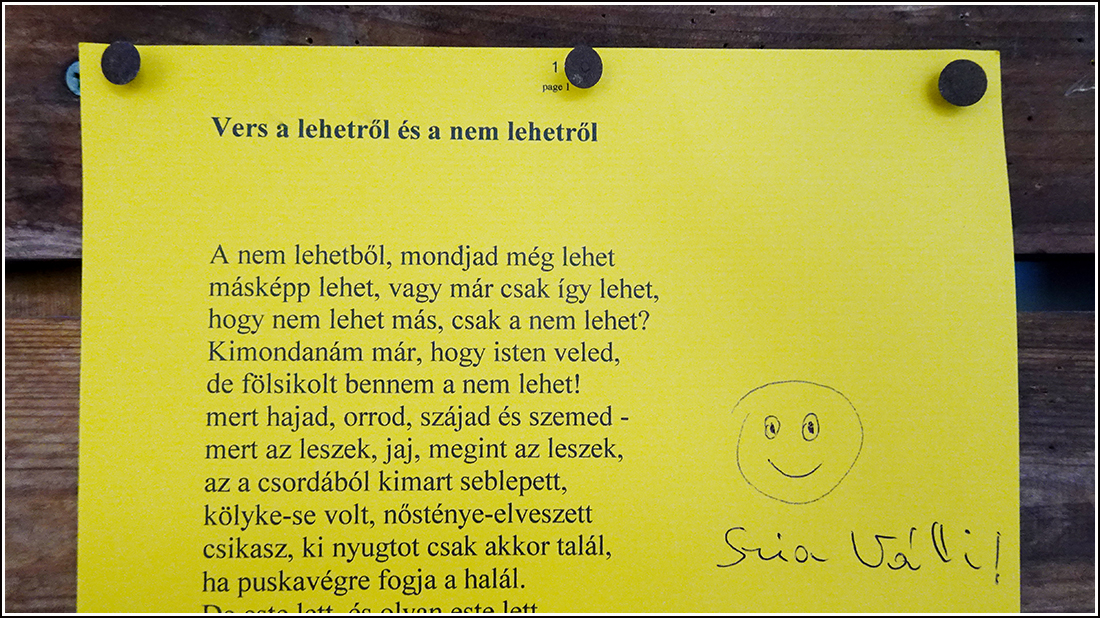 1
page 1
Vers a lehetről és a nem lehetről
A nem lehetből, mondjad még lehet
másképp lehet, vagy már csak így lehet,
hogy nem lehet más, csak a nem lehet?
Kimondanám már, hogy isten veled,
de fölsikolt bennem a nem lehet!
mert hajad, orrod, szájad és szemed -
mert az leszek, jaj, megint az leszek,
az a csordából kimart seblepett,
kölyke-se volt, nősténye-elveszett
csikasz, ki nyugtot csak akkor talál,
ha puskavégre fogja a halál.
De este lett, és olyan este lett
Szia Válli!